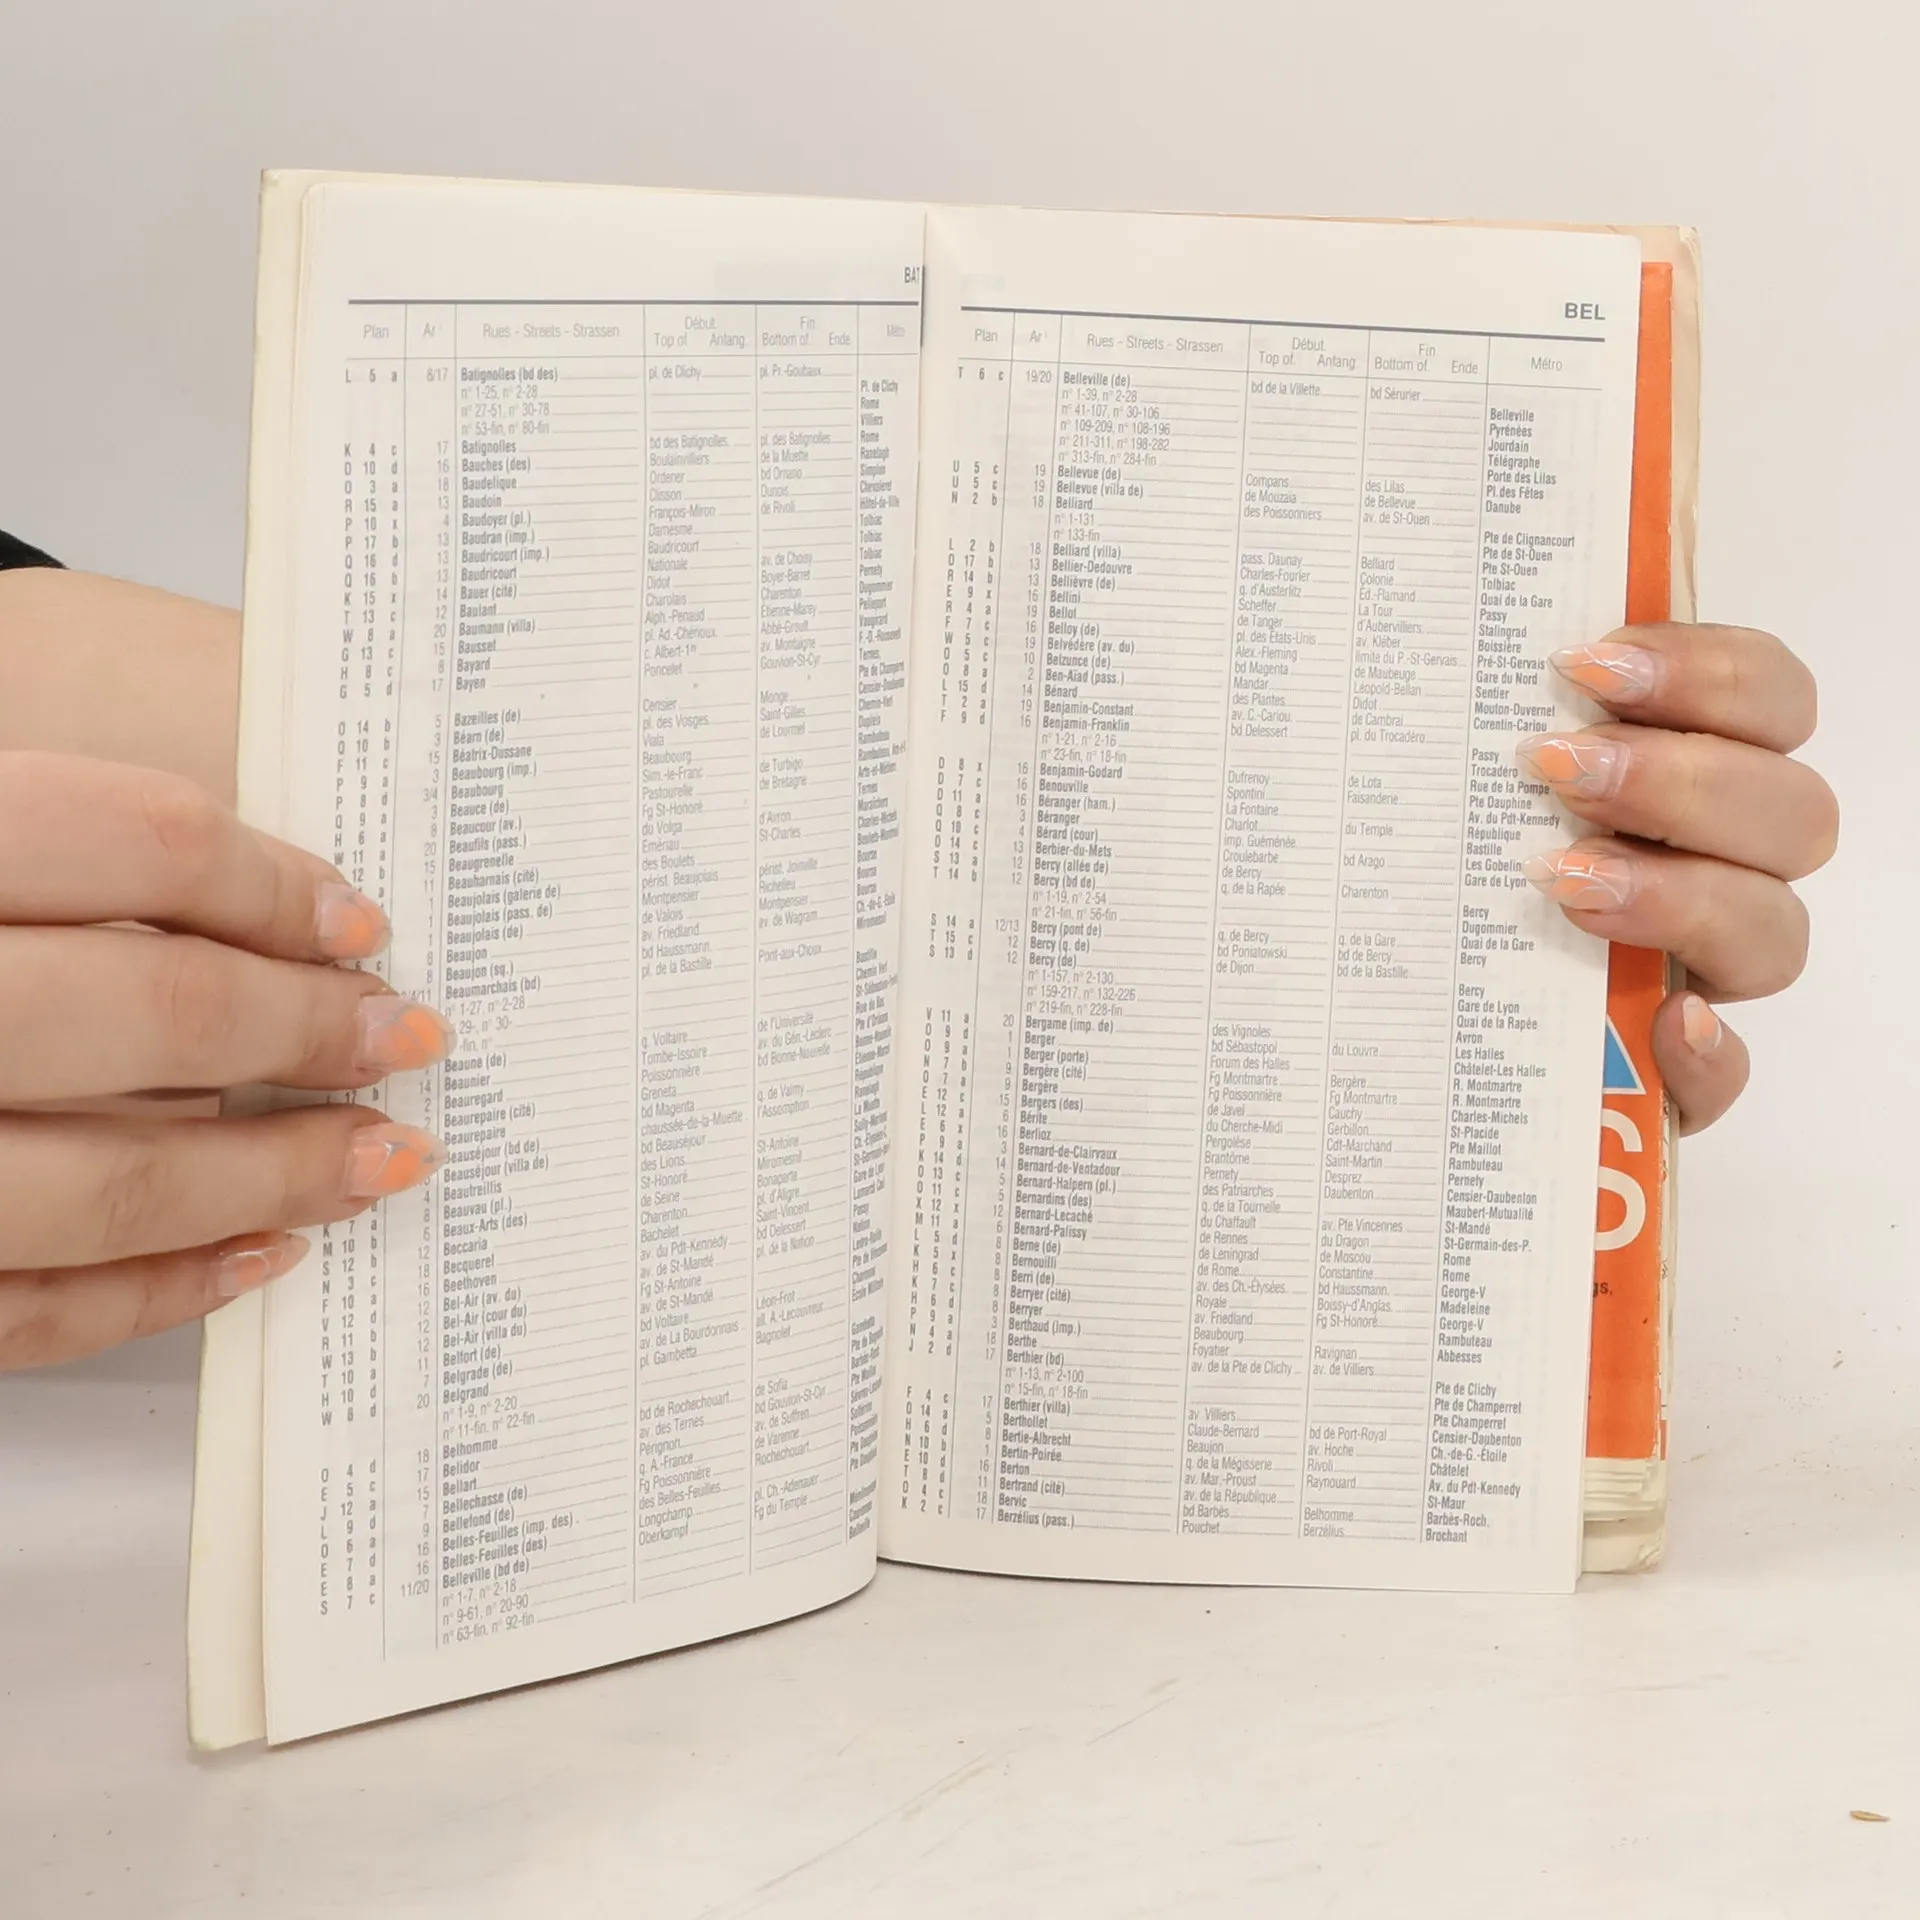 BAT
Plan Ar Rues - Streets - Strassen Début Top of Anfang Fin Bottom of Ende Métro
L 5 a 8/17 Batignolles (bd des) pl. de Clichy pl. Pr.-Goubaux
n° 1-25, n° 2-28 Pl. de Clichy
n° 27-51, n° 30-78 Rome
n° 53-fin, n° 80-fin Villiers
K 4 c 17 Batignolles bd des Batignolles pl. des Batignolles Rome
D 10 d 16 Bauches (des) Boulainvilliers de la Muette Ranelagh
O 3 a 18 Baudelique Ordener bd Ornano Simplon
R 15 a 13 Baudoin Clisson Dunois Chevaleret
P 10 x 4 Baudoyer (pl.) François-Miron de Rivoli Hôtel-de-Ville
P 17 b 13 Baudran (imp.) Damesme Tolbiac
Q 16 d 13 Baudricourt (imp.) Baudricourt Tolbiac
Q 16 b 13 Baudricourt Nationale av. de Choisy Tolbiac
K 15 x 14 Bauer (cité) Didot Boyer-Barret Pernety
T 13 c 12 Baulant Charolais Charenton Dugommier
W 8 a 20 Baumann (villa) Alph.-Penaud Étienne-Marey Pelleport
G 13 c 15 Baussel pl. Ad.-Chérioux Abbé-Groult Vaugirard
H 8 c 8 Bayard c. Albert-1er av. Montaigne F.-D.-Roosevelt
G 5 d 17 Bayen Poncelet Gouvion-St-Cyr Ternes
Pte de Champerret
O 14 b 5 Bazeilles (de) Censier Monge Censier-Daubenton
Q 10 b 3 Béarn (de) pl. des Vosges Saint-Gilles Chemin-Vert
F 11 c 15 Béatrix-Dussane Viala de Lourmel Dupleix
P 9 a 3 Beaubourg (imp.) Beaubourg Rambuteau
P 8 d 3/4 Beaubourg Sim.-le-Franc de Turbigo
Q 9 a 3 Beauce (de) Pastourelle de Bretagne Arts-et-Métiers
H 6 a 8 Beaucour (av.) Fg St-Honoré Ternes
W 11 a 20 Beaufils (pass.) du Volga d'Avron Maraîchers
15 Beaugrenelle Émeriau St-Charles Charles-Michels
12 b 11 Beauharnais (cité) des Boulets
1 Beaujolais (galerie de) périst. Beaujolais périst. Joinville Bourse
1 Beaujolais (pass. de) Montpensier Richelieu Bourse
1 Beaujolais (de) de Valois Montpensier Bourse
8 Beaujon av. Friedland av. de Wagram
8 Beaujon (sq.) bd Haussmann Miromesnil
Beaumarchais (bd) pl. de la Bastille Pont-aux-Choux
n° 1-27, n° 2-28 Bastille
29-, n° 30- Chemin Vert
-fin, n°
Beaune (de) q. Voltaire de l'Université Rue du Bac
14 Beaunier Tombe-Issoire av. du Gén.-Leclerc Pte d'Orléans
2 Beauregard Poissonnière bd Bonne-Nouvelle Bonne-Nouvelle
2 Beaurepaire (cité) Greneta Étienne-Marcel
Beaurepaire bd Magenta q. de Valmy République
Beauséjour (bd de) chaussée-de-la-Muette l'Assomption Ranelagh
Beauséjour (villa de) bd Beauséjour La Muette
4 Beautreillis des Lions St-Antoine Sully-Morland
8 Beauvau (pl.) St-Honoré Miromesnil
6 Beaux-Arts (des) de Seine Bonaparte
12 Beccaria Charenton pl. d'Aligre Gare de Lyon
18 Becquerel Bachelet Saint-Vincent Lamarck Caul
16 Beethoven av. du Pdt-Kennedy bd Delessert Passy
12 Bel-Air (av. du) av. de St-Mandé pl. de la Nation Nation
12 Bel-Air (cour du) Fg St-Antoine
12 Bel-Air (villa du) av. de St-Mandé
11 Belfort (de) bd Voltaire Léon-Frot Charonne
7 Belgrade (de) av. de La Bourdonnais all. A.-Lecouvreur École Militaire
20 Belgrand pl. Gambetta Bagnolet
n° 1-9, n° 2-20 Gambetta
n° 11-fin, n° 22-fin Pte de Bagnolet
O 4 d 18 Belhomme bd de Rochechouart de Sofia Barbès-Roch.
E 5 c 17 Belidor av. des Ternes bd Gouvion-St-Cyr Pte Maillot
J 12 a 15 Bellart Pérignon av. de Suffren Sèvres-Lecourbe
L 9 d 7 Bellechasse (de) q. A.-France de Varenne Solférino
O 6 a 9 Bellefond (de) Fg Poissonnière Rochechouart Poissonnière
E 7 d 16 Belles-Feuilles (imp. des) des Belles-Feuilles Pte Dauphine
E 8 a 16 Belles-Feuilles (des) Longchamp pl. Ch.-Adenauer Pte Dauphine
S 7 c 11/20 Belleville (bd de) Oberkampf Fg du Temple
n° 1-7, n° 2-18 Ménilmontant
n° 9-61, n° 20-90 Couronnes
n° 63-fin, n° 92-fin Belleville
BEL
Plan Ar Rues - Streets - Strassen Début Top of Anfang Fin Bottom of Ende Métro
T 6 c 19/20 Belleville (de) bd de la Villette bd Sérurier
n° 1-39, n° 2-28 Belleville
n° 41-107, n° 30-106 Pyrénées
n° 109-209, n° 108-196 Jourdain
n° 211-311, n° 198-282 Télégraphe
n° 313-fin, n° 284-fin Porte des Lilas
U 5 c 19 Bellevue (de) Compans des Lilas Pl. des Fêtes
U 5 c 19 Bellevue (villa de) de Mouzaïa de Bellevue Danube
N 2 b 18 Belliard des Poissonniers av. de St-Ouen
n° 1-131 Pte de Clignancourt
n° 133-fin Pte de St-Ouen
L 2 b 18 Belliard (villa) pass. Daunay Belliard Pte St-Ouen
O 17 b 13 Bellier-Dedouvre Charles-Fourier Colonie Tolbiac
R 14 b 13 Bellièvre (de) q. d'Austerlitz Ed.-Flamand Quai de la Gare
E 9 x 16 Bellini Scheffer La Tour Passy
R 4 a 19 Bellot de Tanger d'Aubervilliers Stalingrad
F 7 c 16 Belloy (de) pl. des États-Unis av. Kléber Boissière
W 5 c 19 Belvédère (av. du) Alex.-Fleming limite du P.-St-Gervais Pré-St-Gervais
O 5 c 10 Belzunce (de) bd Magenta de Maubeuge Gare du Nord
O 8 a 2 Ben-Aïad (pass.) Mandar Léopold-Bellan Sentier
L 15 d 14 Bénard des Plantes Didot Mouton-Duvernet
T 2 a 19 Benjamin-Constant av. C.-Cariou de Cambrai Corentin-Cariou
F 9 d 16 Benjamin-Franklin bd Delessert pl. du Trocadéro
n° 1-21, n° 2-16 Passy
n° 23-fin, n° 18-fin Trocadéro
D 8 x 16 Benjamin-Godard Dufrenoy de Lota Rue de la Pompe
D 7 c 16 Benouville Spontini Faisanderie Pte Dauphine
D 11 a 16 Béranger (ham.) La Fontaine Av. du Pdt-Kennedy
Q 8 c 3 Béranger Charlot du Temple République
Q 10 c 4 Bérard (cour) imp. Guéménée Bastille
O 14 c 13 Berbier-du-Mets Croulebarbe bd Arago Les Gobelin
S 13 a 12 Bercy (allée de) de Bercy Gare de Lyon
T 14 b 12 Bercy (bd de) q. de la Rapée Charenton
n° 1-19, n° 2-54 Bercy
n° 21-fin, n° 56-fin Dugommier
S 14 a 12/13 Bercy (pont de) q. de Bercy q. de la Gare Quai de la Gare
T 15 c 12 Bercy (q. de) bd Poniatowski bd de Bercy Bercy
S 13 d 12 Bercy (de) de Dijon bd de la Bastille
n° 1-157, n° 2-130 Bercy
n° 159-217, n° 132-226 Gare de Lyon
n° 219-fin, n° 228-fin Quai de la Rapée
V 11 a 20 Bergame (imp. de) des Vignoles Avron
O 9 d 1 Berger bd Sébastopol du Louvre Les Halles
O 9 a 1 Berger (porte) Forum des Halles Châtelet-Les Halles
N 7 b 9 Bergère (cité) Fg Montmartre Bergère R. Montmartre
O 7 a 9 Bergère Fg Poissonnière Fg Montmartre R. Montmartre
E 12 c 15 Bergers (des) de Javel Cauchy Charles-Michels
L 12 a 6 Bérite du Cherche-Midi Gerbillon St-Placide
E 6 x 16 Berlioz Pergolèse Cdt-Marchand Pte Maillot
P 9 a 3 Bernard-de-Clairvaux Brantôme Saint-Martin Rambuteau
K 14 d 14 Bernard-de-Ventadour Pernety Desprez Pernety
O 13 c 5 Bernard-Halpern (pl.) des Patriarches Daubenton Censier-Daubenton
O 11 c 5 Bernardins (des) q. de la Tournelle Maubert-Mutualité
X 12 x 12 Bernard-Lecache du Chaffault av. Pte Vincennes St-Mandé
M 11 a 6 Bernard-Palissy de Rennes du Dragon St-Germain-des-P.
L 5 d 8 Berne (de) de Leningrad de Moscou Rome
K 5 x 8 Bernouilli de Rome Constantine Rome
H 6 c 8 Berri (de) av. des Ch.-Élysées bd Haussmann George-V
K 7 c 8 Berryer (cité) Royale Boissy-d'Anglas Madeleine
H 6 d 8 Berryer av. Friedland Fg St-Honoré George-V
P 9 a 3 Berthaud (imp.) Beaubourg Rambuteau
N 4 a 18 Berthe Foyatier Ravignan Abbesses
J 2 d 17 Berthier (bd) av. de la Pte de Clichy av. de Villiers
n° 1-13, n° 2-100 Pte de Clichy
n° 15-fin, n° 18-fin Pte de Champerret
F 4 c 17 Berthier (villa) av. Villiers Pte Champerret
O 14 a 5 Berthollet Claude-Bernard bd de Port-Royal Censier-Daubenton
H 6 d 8 Bertie-Albrecht Beaujon av. Hoche Ch.-de-G.-Étoile
N 10 b 1 Bertin-Poirée q. de la Mégisserie Rivoli Châtelet
E 10 d 16 Berton av. Mar.-Proust Raynouard Av. du Pdt-Kennedy
T 8 d 11 Bertrand (cité) av. de la République St-Maur
O 4 c 18 Bervic bd Barbès Belhomme Barbès-Roch.
K 2 c 17 Berzélius (pass.) Pouchet Berzélius Brochant
S
gs,